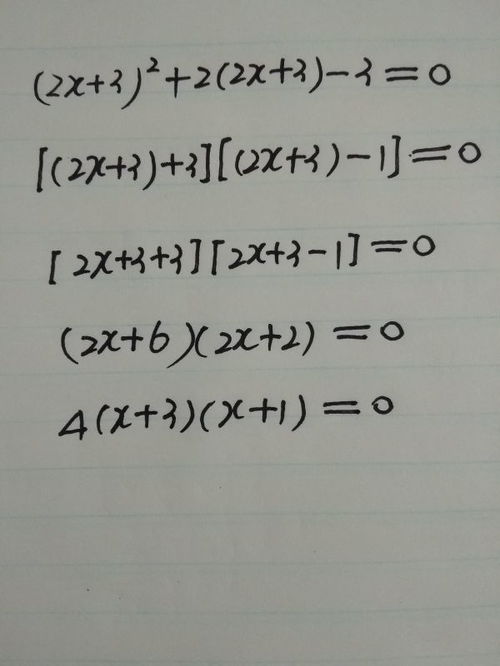 (2x+3)²+2(2x+3)-3=0
[(2x+3)+3][(2x+3)-1]=0
[2x+3+3][2x+3-1]=0
(2x+6)(2x+2)=0
4(x+3)(x+1)=0